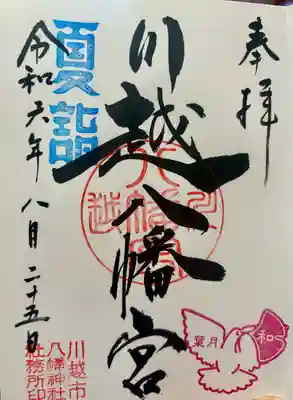 奉拝
川越八幡宮
夏詣
令和六年八月二十五日
川越八幡宮
葉月
和
川越市
八幡神社
社務所印